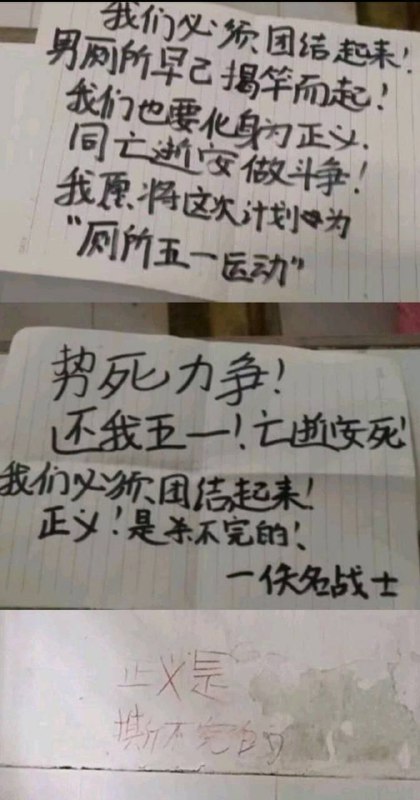 我们必须团结起来!
男厕所早已揭竿而起!
我们也要化身为正义.
同亡逝安做斗争!
我愿将这次计划 为
"厕所五一运动"
势死力争!
还我五一!亡逝安死!
我们必须团结起来!
正义!是杀不完的!
一佚名战士
正义是
撕不完的